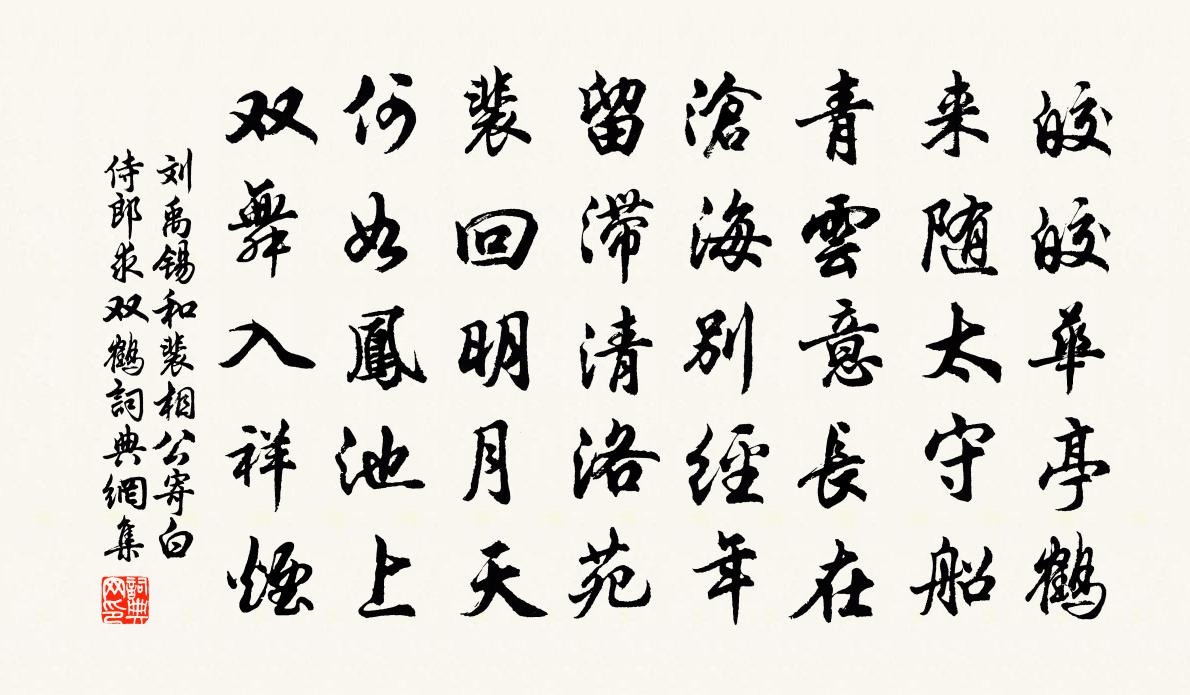 皎皎華亭鶴
来随太守船
青雲意長在
滄海別經年
留滞清洛苑
裴回明月天
何如鳳池上
双舞入祥煙
刘禹锡和裴相公寄白
侍郎求双鶴詞典網集
詞典
网印